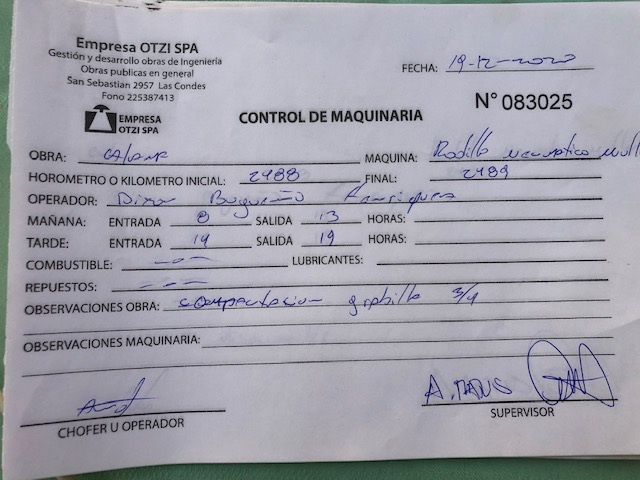 Empresa OTZI SPA
Gestión y desarrollo obras de Ingeniería
Obras publicas en general
San Sebastian 2957 Las Condes
Fono 225387413
EMPRESA
OTZI SPA
FECHA: 19-12-2022
CONTROL DE MAQUINARIA
N° 083025
OBRA: MAQUINA: Rodillo neumatico
HOROMETRO O KILOMETRO INICIAL: 2488 FINAL: 2489
OPERADOR:
MAÑANA: ENTRADA 8 SALIDA 13 HORAS:
TARDE: ENTRADA 14 SALIDA 19 HORAS:
COMBUSTIBLE: --- LUBRICANTES:
REPUESTOS: ---
OBSERVACIONES OBRA: compactacion gabilla 3/4
OBSERVACIONES MAQUINARIA:
CHOFER U OPERADOR
SUPERVISOR